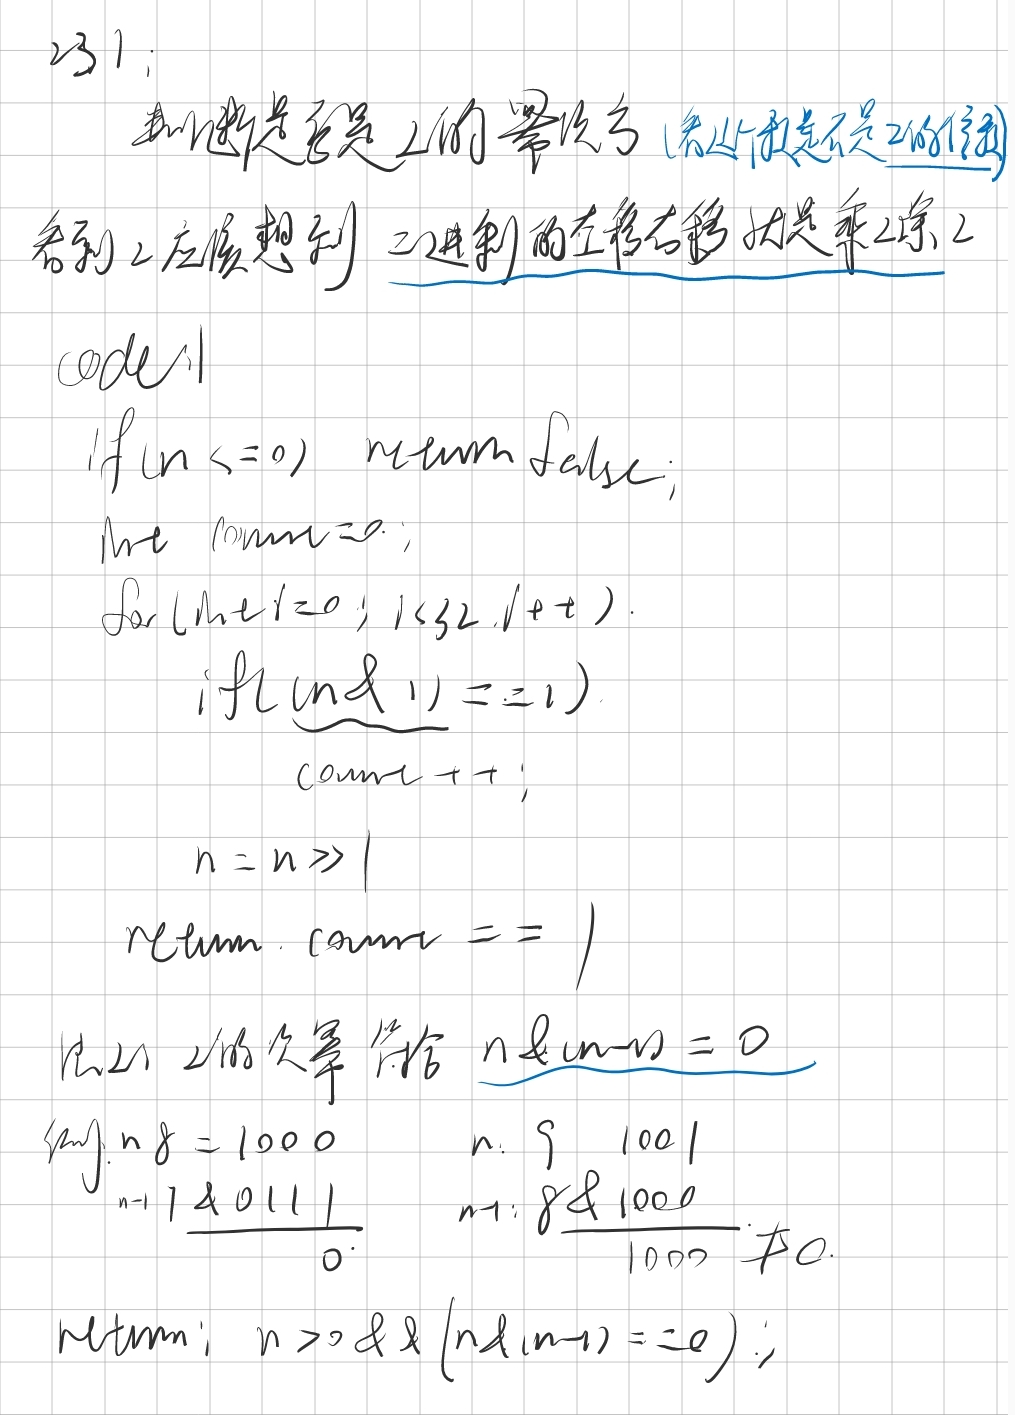 231;
判断是否是2的幂次方 (看这个数是不是2的倍数)
看到2应该想到 二进制的左移右移就是乘2除2
code1
if(n<=0) return false;
int count=0;
for(int i=0; i<32;i++).
if((n&1)==1)
count++;
n=n>>1
return count==1
2的次幂符合 n&(n-1)=0
例. n 8 = 1000 n: 9 1001
n-1 7 & 0111 n-1: 8 & 1000
0 1000 ≠0.
return; n>0&&(n&(n-1)==0);